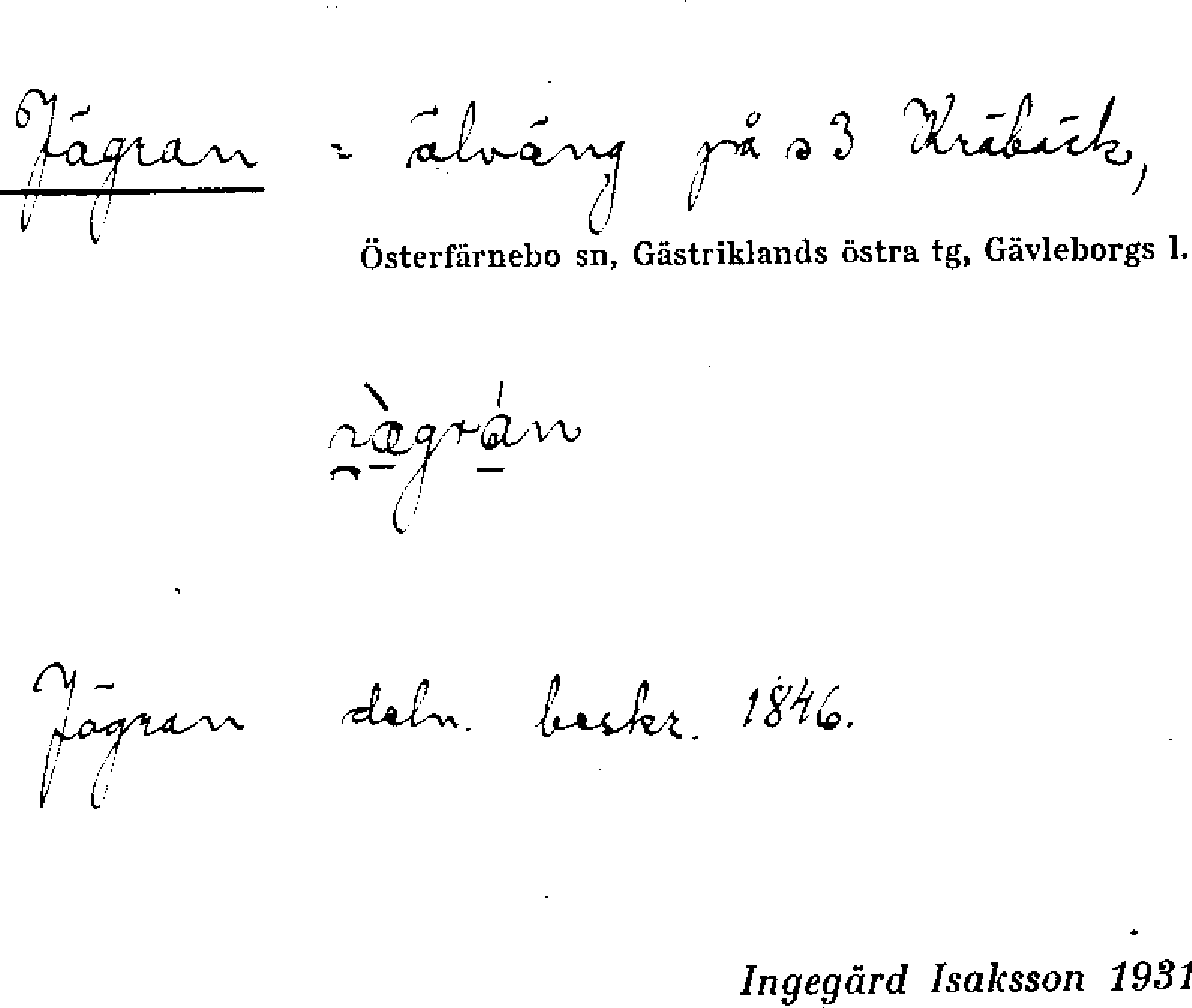 Jägran = älväng på s 3 Kräbäck,
Österfärnebo sn, Gästriklands östra tg, Gävleborgs l.
Jägran deln. beskr. 1846.
Ingegärd Isaksson 1931